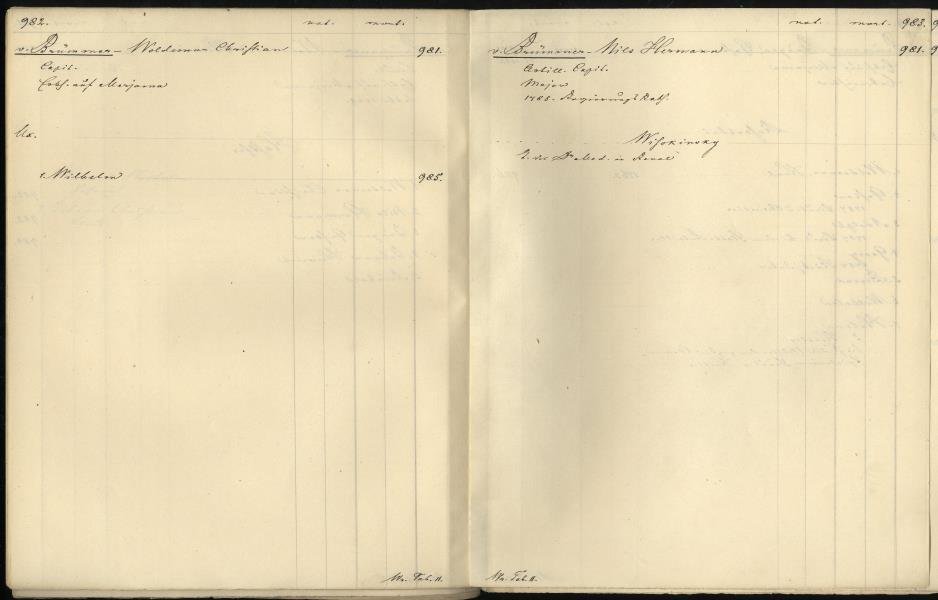 982. nat. mort.
v. Brümmer - Woldemar Christian 981.
Capit.
Erbh. auf Merjama
Ux.
1. Wilhelm 985.
Ma. Tab. II.
nat. mort. 983.
v. Brümmer - Nils Hermann 981.
Artill. Capit.
Major
1785. Regierungs Rath.
Wisokinsky
T. des Dr. Med. in Reval
Ma. Tab. II.